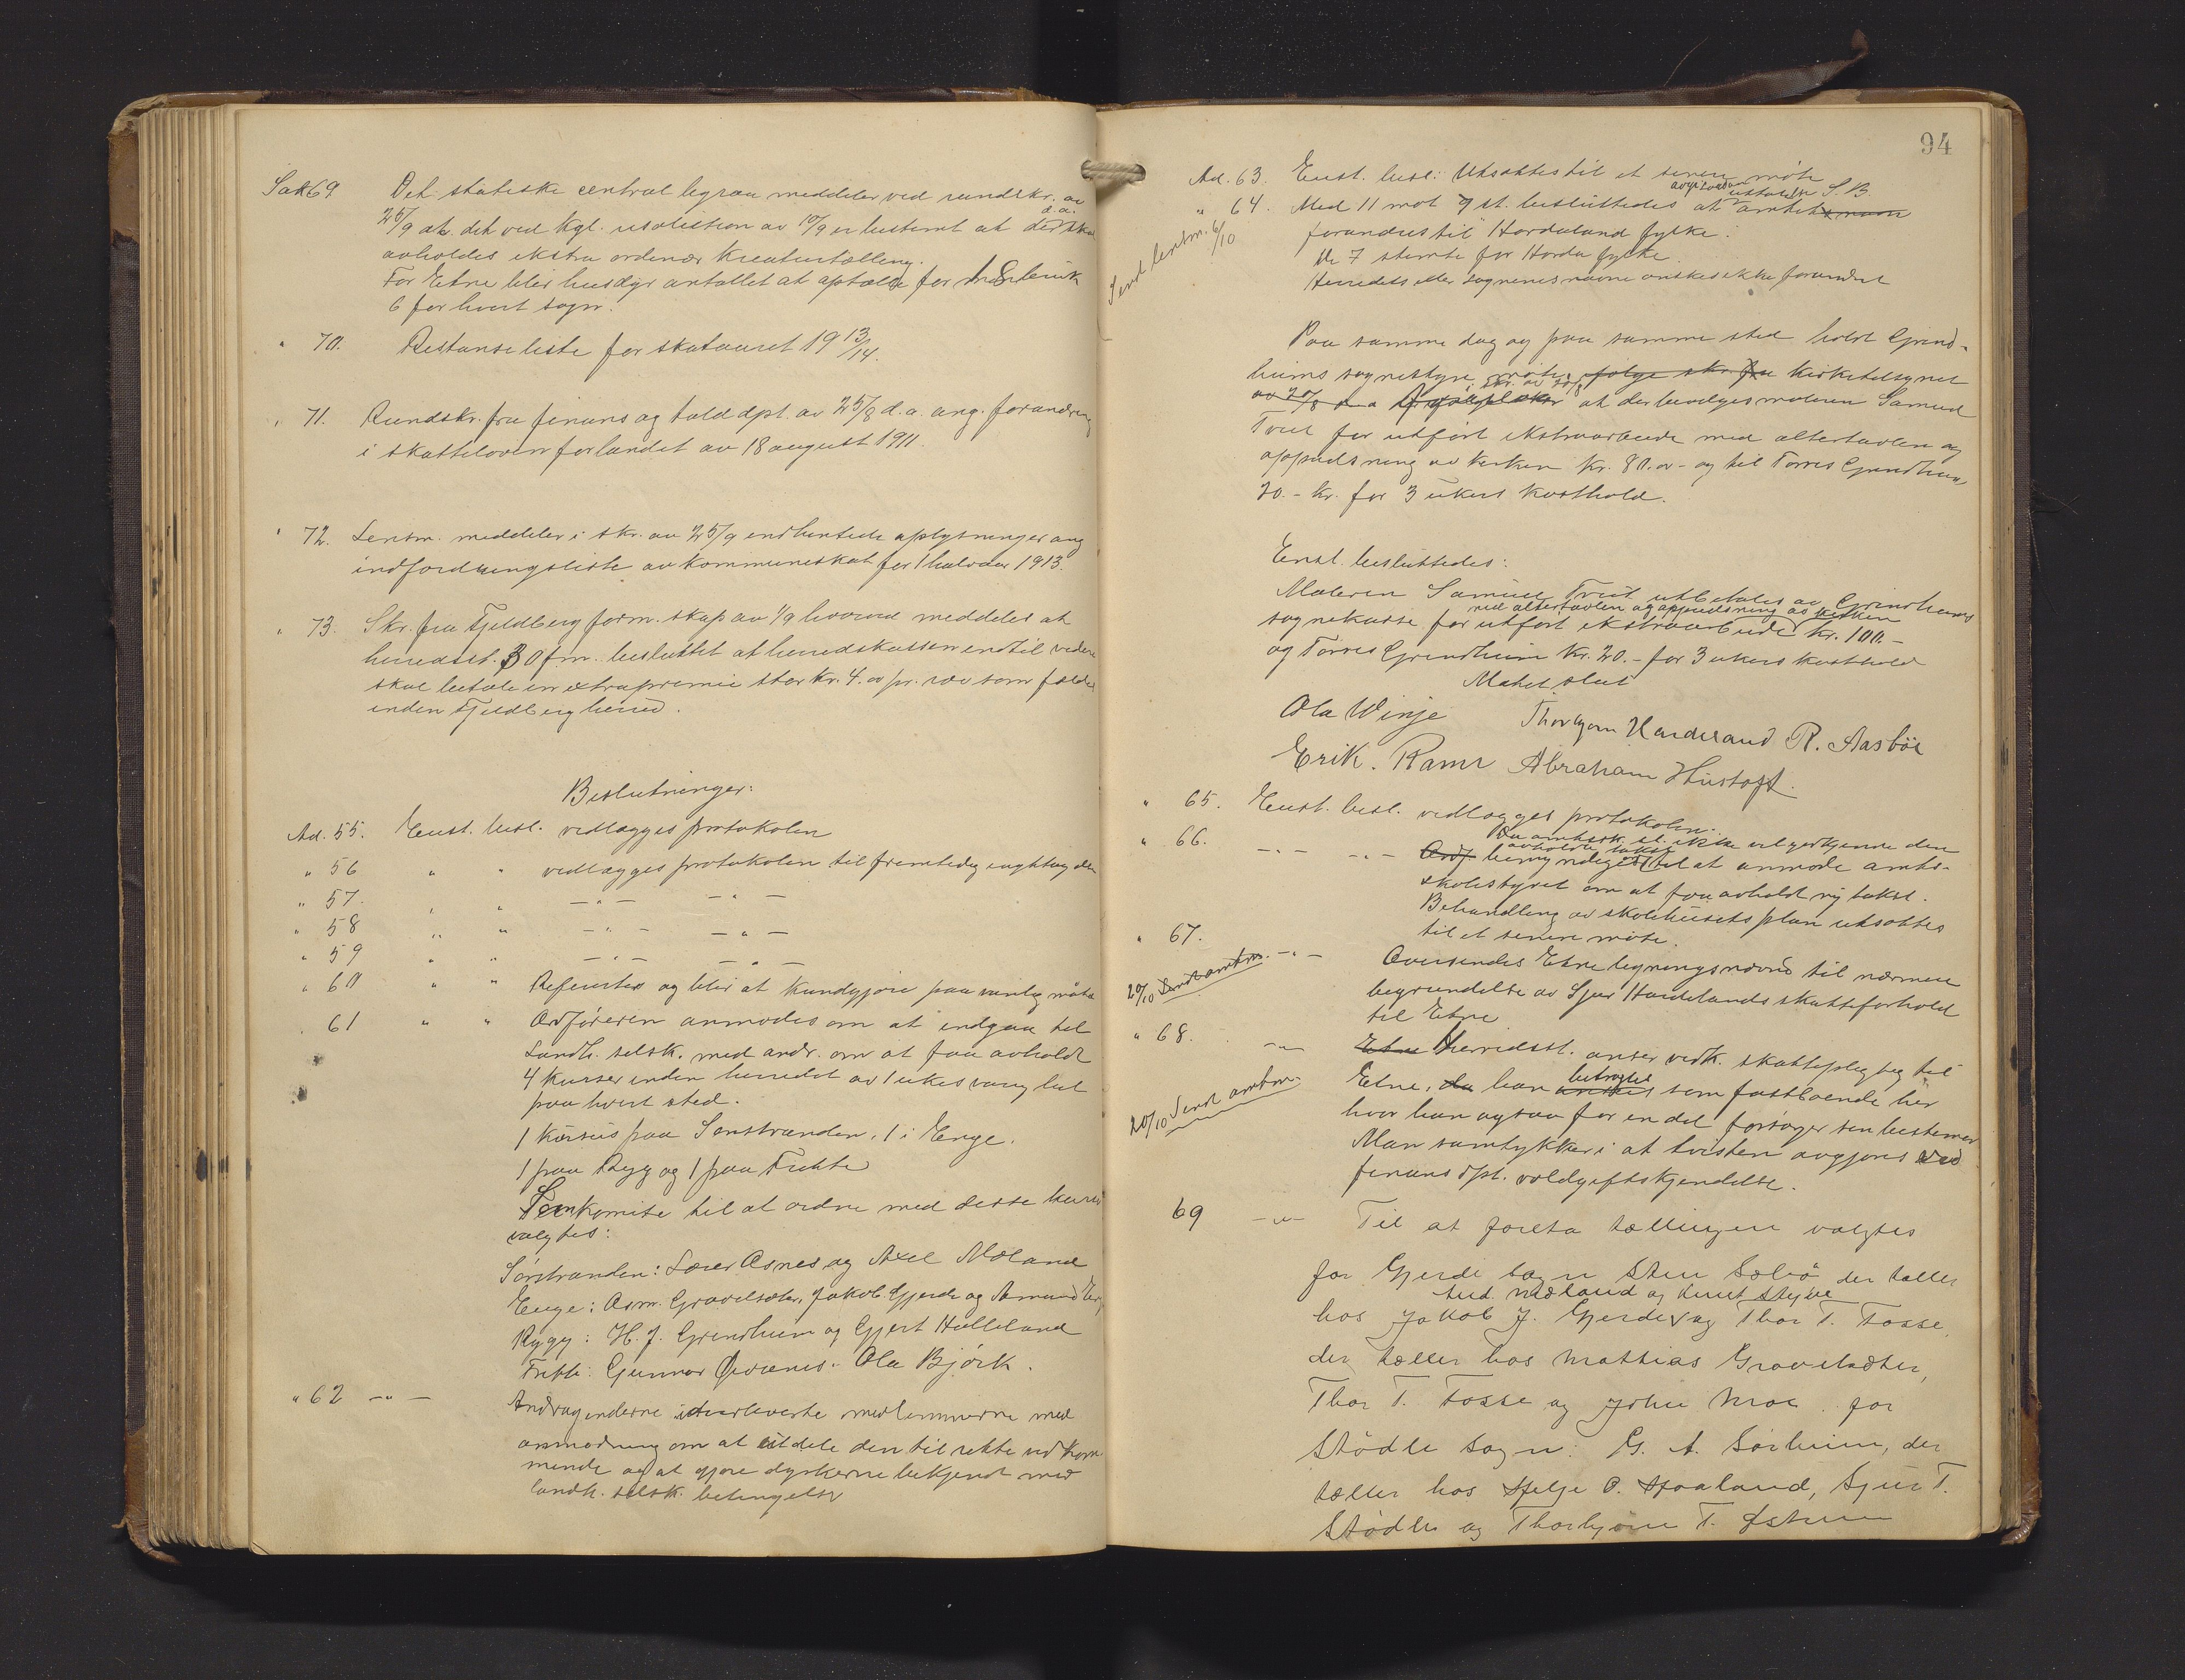 Sak 69 Det statiske centralbyraa meddeler ved rundskr. av
25/9 d.a. at det ved kgl. resolution av 10/9 er bestemt at der skal
avholdes ekstra ordenær kreaturtælling.
For Etne blir husdyr antallet at optælle for
6 for hvert sogn.
" 70. Restanseliste for skataaret 1913/14.
" 71. Rundskr. fra finans og told dpt. av 25/8 d.a. ang. forandring
i skatteloven for landet av 18 august 1911.
" 72. Lensm. meddeler i skr. av 25/9 endhentede oplysninger ang
indfordringsliste av kommuneskat for 1 halvaar 1913.
" 73. Skr. fra Fjeldberg form.skap av 1/9 hvorved meddeles at
herredsst. 30 f.m. besluttet at herredskassen indtil videre
skal betale en extrapremie stor kr. 4.oo pr. rev som fældes
inden Fjeldberg herred.
Beslutninger:
Ad. 55. Enst. besl. vedlægges protokolen
" 56 " " vedlægges protokolen til fremtidig iagttagelse
" 57. " " —"— —"—
" 58 " " —"— —"—
" 59 " " —"— —"—
" 60 " " Refereres og blir at kundgjøre paa vanlig maate
" 61 " " Ordføreren anmodes om at indgaa til
Landh. selsk. med andr. om at faa avholdt
4 kurser inden herredet av 1 ukes varighet
paa hvert sted.
1 kursus paa Sørstranden, 1 i Enge,
1 paa Rygg og 1 paa Fritte
Som komite til at ordne med disse kurser
valgtes:
Sørstranden: Lærer Osnes og Axel Mæland
Enge: Asm. Gravelsæter, Jakob Gjerde og Amund
Rygg: H. J. Grindheim og Gjert Hølleland
Fritte: Gunnar Øvrenes. Ola Bjørk.
" 62 —"— Andragenderne medlemmerne med
anmodning om at utdele den til rette vedkom
mende og at gjøre dyrkerne bekjendt med
landh. selsk. betingelser
94
Ad. 63. Enst. besl: Utsættes til et senere møte
avgi saadan uttalelse S.B.
" 64. Med 11 mot 7 st. besluttedes at amtets navn
Sendt lensm. 6/10
forandres til Hordaland fylke.
De 7 stemte for Horda fylke.
Herredets eller sognenes navne ønskes ikke forandret
Paa samme dag og paa samme sted holdt Grind-
heims sognestyre møte. ifølge skr. fra kirketilsynet
skr. av 20/8
av 20/8 d.a at der bevilges maleren Samuel
Tveit for utført ekstraarbeide med altertavlen og
oppudsning av kirken kr. 80.oo- og til Torres Grindheim
20.- kr. for 3 ukers kosthold.
Enst. besluttedes:
Maleren Samuel Tveit utbetales av Grindheims
ved altertavlen og oppudsning av kirken
sognekasse for utført ekstraarbeide kr. 100.-
og Torres Grindheim kr. 20.- for 3 ukers kosthold
Møtet slut
Ola Winje Thorbjørn Handeland R. Aasbøe
Erik. Ramr Abraham Hustoft.
" 65. Enst. besl. vedlægges protokolen.
Da amtssk.st. ikke vil godkjenne den
avholdte takst
" 66. —"— —"— Ordf. bemyndiges til at anmode amts-
skolestyret om at faa avholdt ny takst.
Behandling av skolehusets plan utsættes
til et senere møte.
" 67. —"— Oversendes Etne ligningsnævnd til nærmere
20/10 Sendt amtm.
begrundelse av Sjur Hardelands skatteforhold
til Etne
" 68. —"— Etne Herredsst. anser vedk. skattepligtig til
betragtes
Etne, da han ansees som fastboende her
20/10 Sendt amtm.
hvor han ogsaa for en del forsørger sin bestemor
Man samtykker i at tvisten avgjøres ved
finans dpt. voldgiftskjendelse.
69 —"— Til at foreta tællingen valgtes
for Gjerde sogn Sten Sæbø der tæller
And Mæland og Knut Styve
hos Jakob J. Gjerde og Thor T. Fosse,
der tæller hos Mathias Gravelsæter,
Thor T. Fosse og John Moe. for
Stødle sogn: G. A. Sørheim, der
tæller hos Helje O. Haaland, Sjur T.
Stødle og Thorbjørn T. Østrem